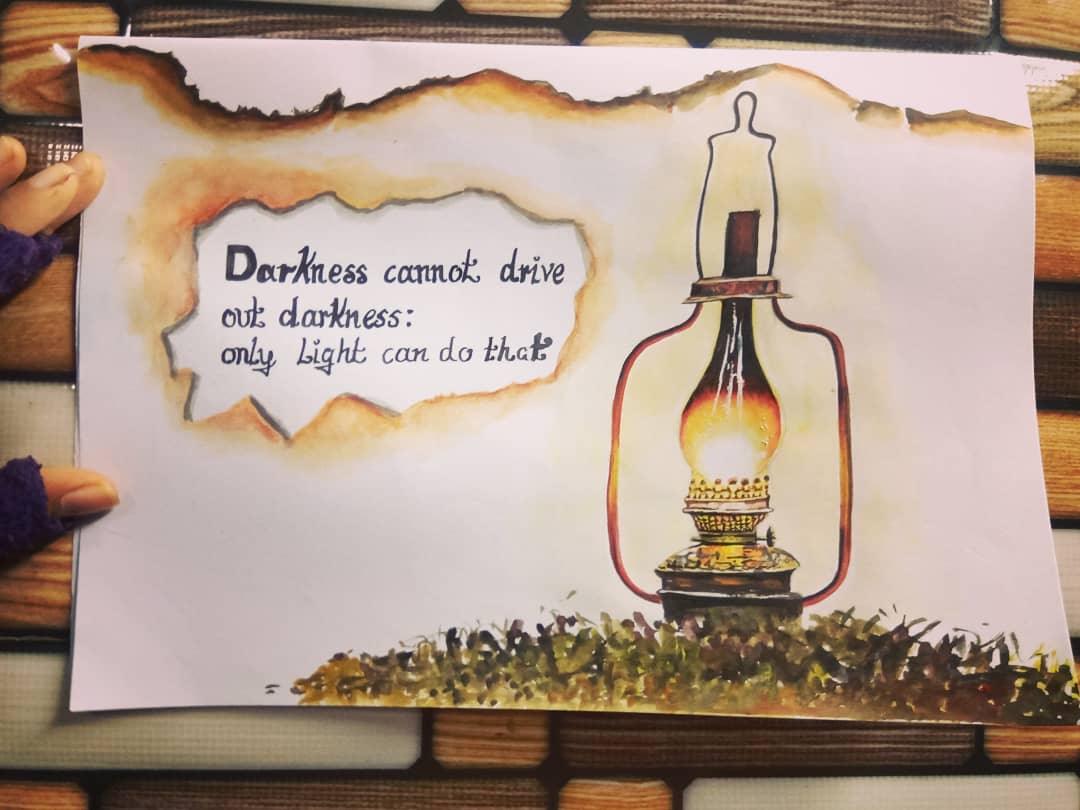 Darkness cannot drive
out darkness:
only Light can do that